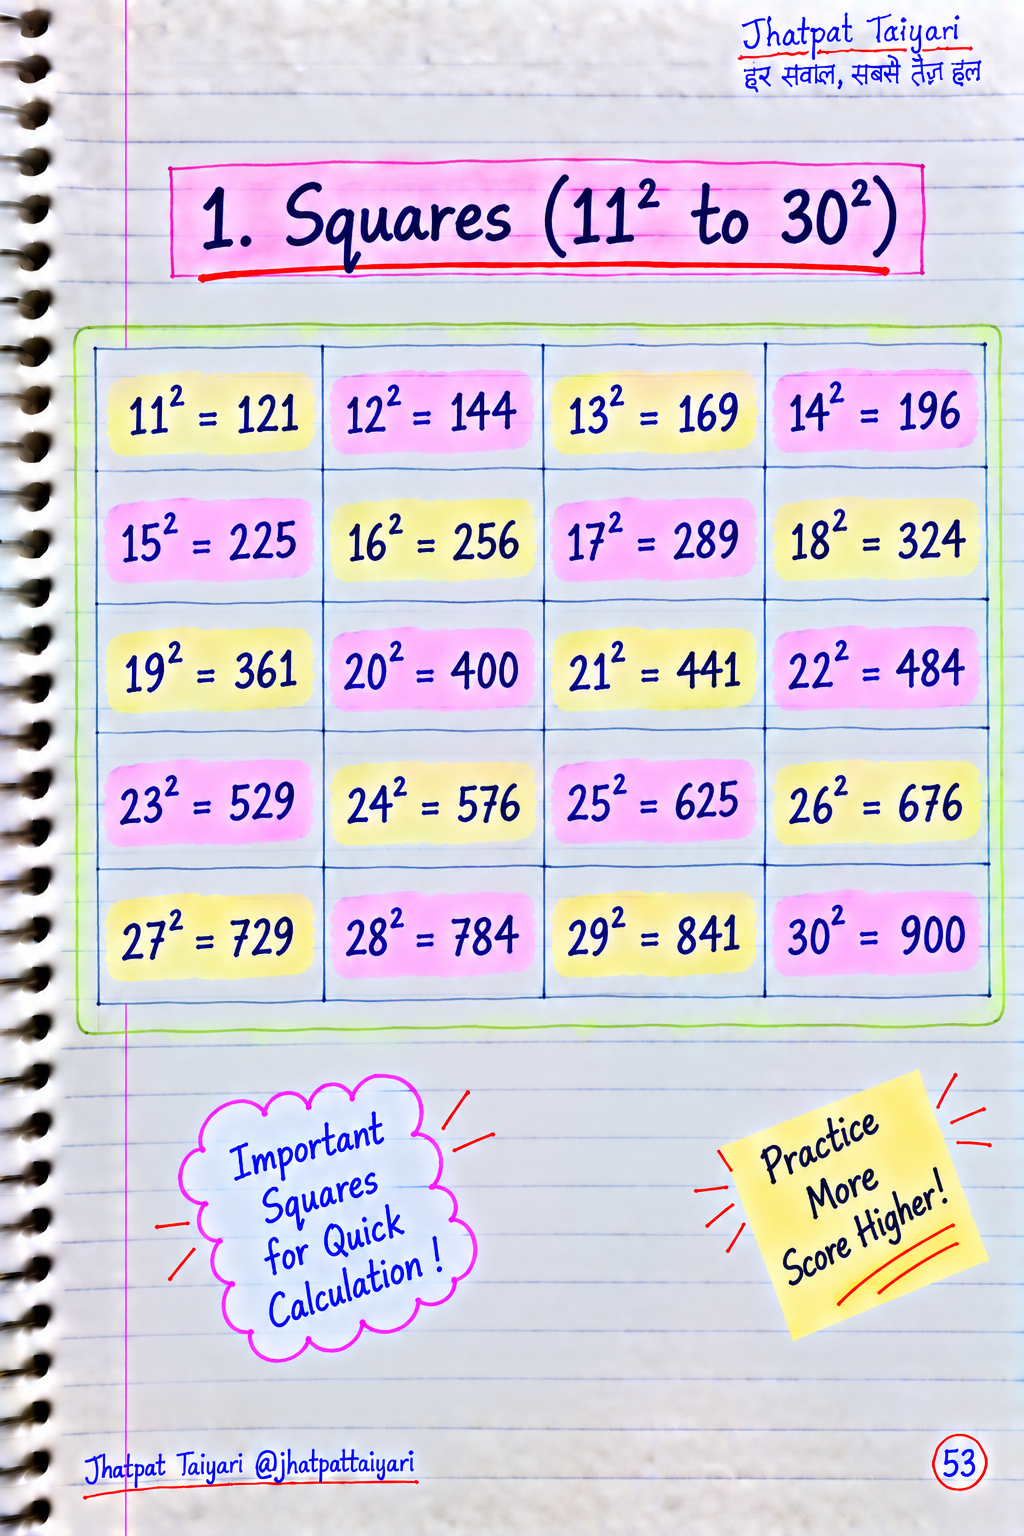 Jhatpat Taiyari
हर सवाल, सबसे तेज़ हल
1. Squares (11² to 30²)
11² = 121 12² = 144 13² = 169 14² = 196
15² = 225 16² = 256 17² = 289 18² = 324
19² = 361 20² = 400 21² = 441 22² = 484
23² = 529 24² = 576 25² = 625 26² = 676
27² = 729 28² = 784 29² = 841 30² = 900
Important
Squares
for Quick
Calculation !
Practice
More
Score Higher!
Jhatpat Taiyari @jhatpattaiyari
53